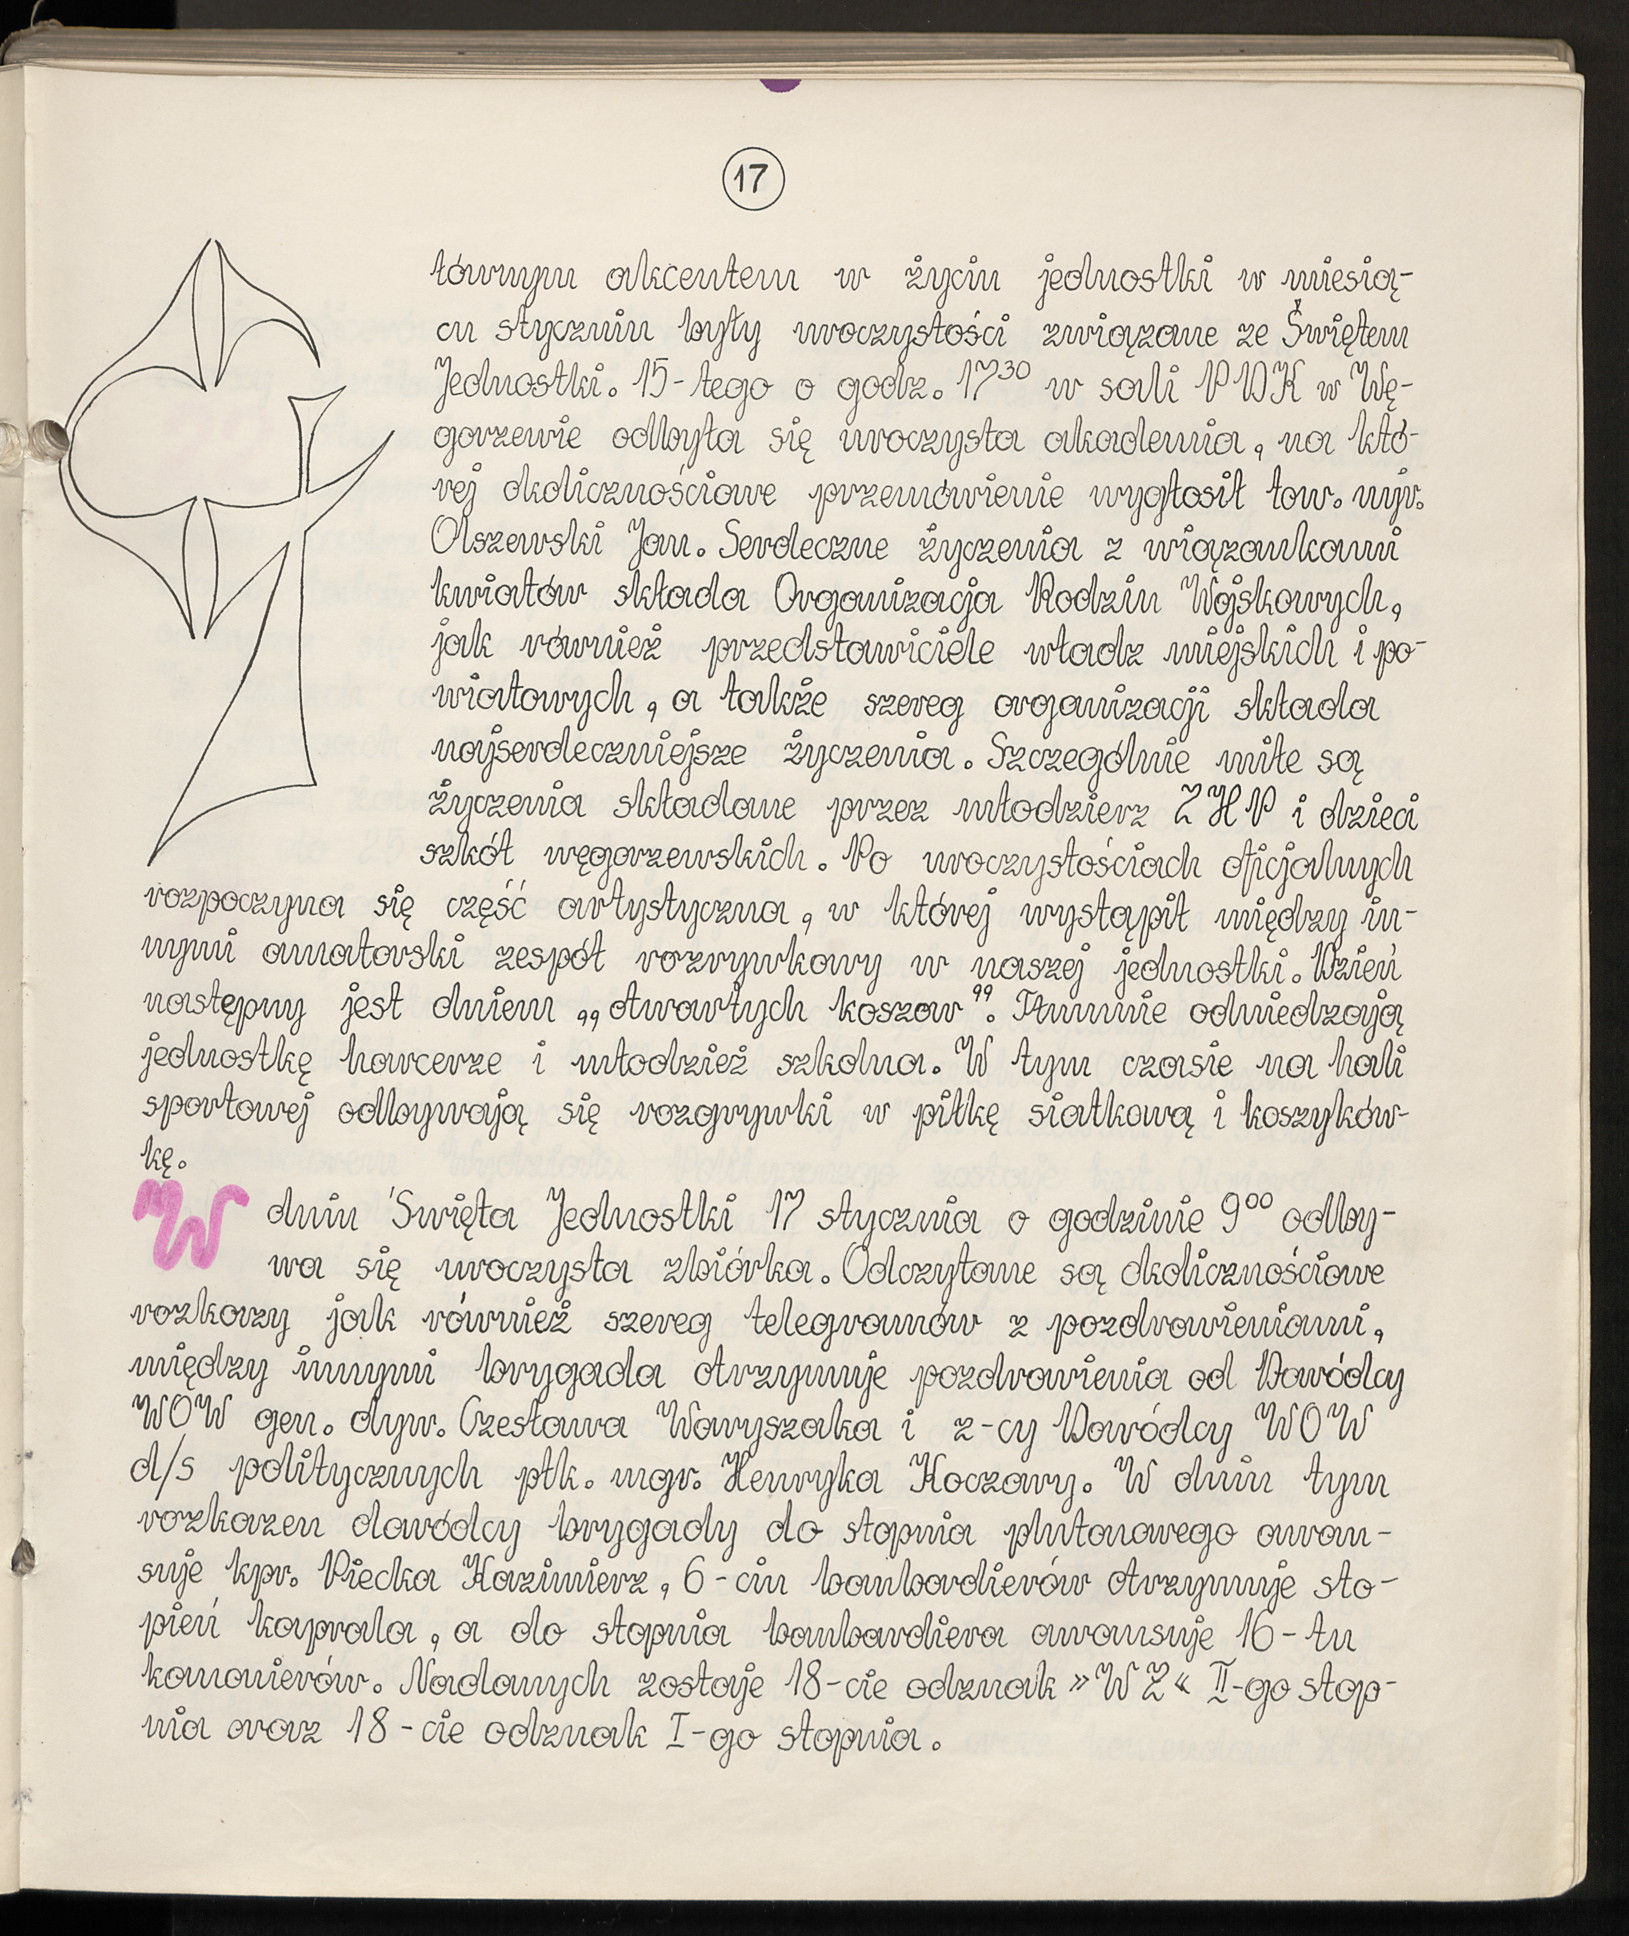 17
G
łównym akcentem w życiu jednostki w miesią-
cu styczniu były uroczystości związane ze Świętem
Jednostki. 15-tego o godz. 17³⁰ w sali PDK w Wę-
gorzewie odbyła się uroczysta akademia, na któ-
rej okolicznościowe przemówienie wygłosił tow. mjr.
Olszewski Jan. Serdeczne życzenia z wiązankami
kwiatów składa Organizacja Rodzin Wojskowych,
jak również przedstawiciele władz miejskich i po-
wiatowych, a także szereg organizacji składa
najserdeczniejsze życzenia. Szczególnie miłe są
życzenia składane przez młodzierz ZHP i dzieci
szkół węgorzewskich. Po uroczystościach oficjalnych
rozpoczyna się część artystyczna, w której wystąpił między in-
nymi amatorski zespół rozrywkowy w naszej jednostki. Dzień
następny jest dniem „otwartych koszar”. Tłumnie odwiedzają
jednostkę harcerze i młodzież szkolna. W tym czasie na hali
sportowej odbywają się rozgrywki w piłkę siatkową i koszyków-
kę.
W dniu Święta Jednostki 17 stycznia o godzinie 9⁰⁰ odby-
wa się uroczysta zbiórka. Odczytane są okolicznościowe
rozkazy jak również szereg telegramów z pozdrowieniami,
między innymi brygada otrzymuje pozdrowienia od Dowódcy
WOW gen. dyw. Czesława Waryszaka i z-cy Dowódcy WOW
d/s politycznych płk. mgr. Henryka Koczary. W dniu tym
rozkazen dowódcy brygady do stopnia plutonowego awan-
suje kpr. Piecka Kazimierz, 6-ciu bombardierów otrzymuje sto-
pień kaprala, a do stopnia bombardiera awansuje 16-tu
kanonierów. Nadanych zostaje 18-cie odznak »WZ« II-go stop-
nia oraz 18-cie odznak I-go stopnia.